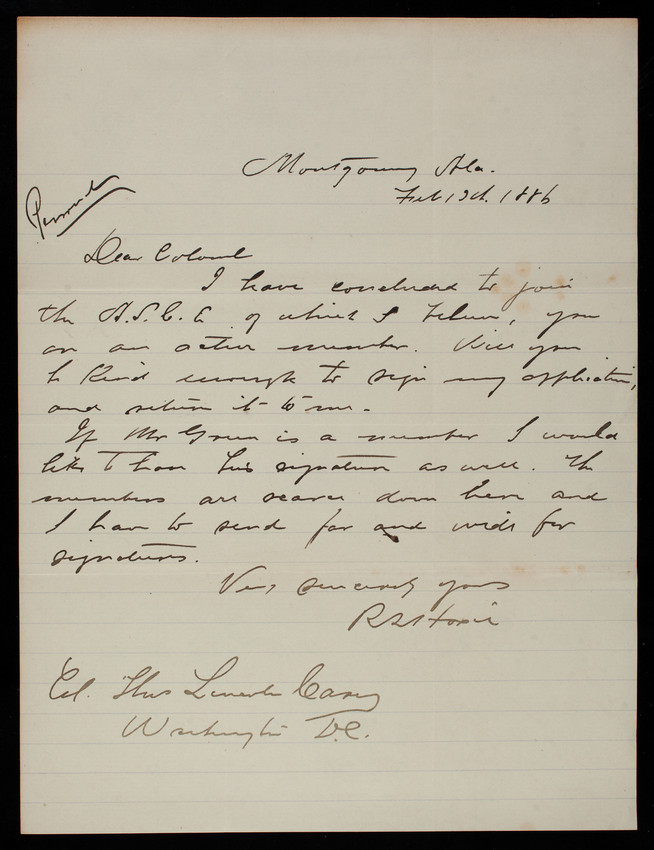 Montgomery Ala.
Feb 13th. 1886
Dear Colonel
I have concluded to join
the A.S.C.E. of which I believe, you
are an active member. Will you
be kind enough to sign my application,
and return it to me.
If Mr Green is a member I would
like to have his signature as well. The
members are scarce down here and
I have to send far and wide for
signatures.
Very sincerely yours
R L Hoxie
Col. Thos Lincoln Casey
Washington D.C.